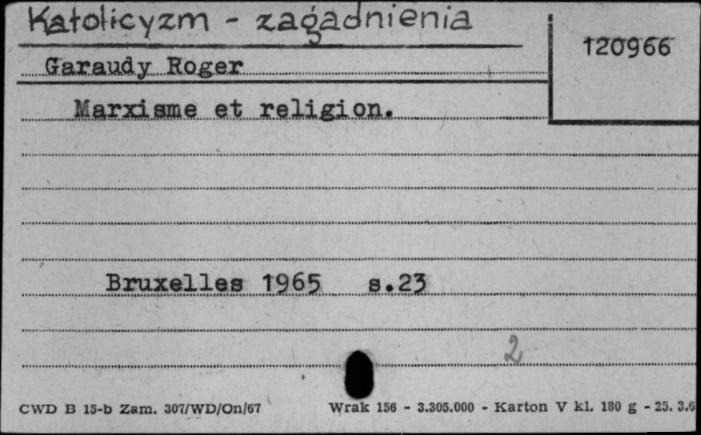 Katolicyzm - zagadnienia
120966
Garaudy Roger
Marxisme et religion.
Bruxelles 1965 s.23
2
CWD B 15-b Zam. 307/WD/On/67 Wrak 156 - 3.305.000 - Karton V kl. 180 g - 25. 3.6